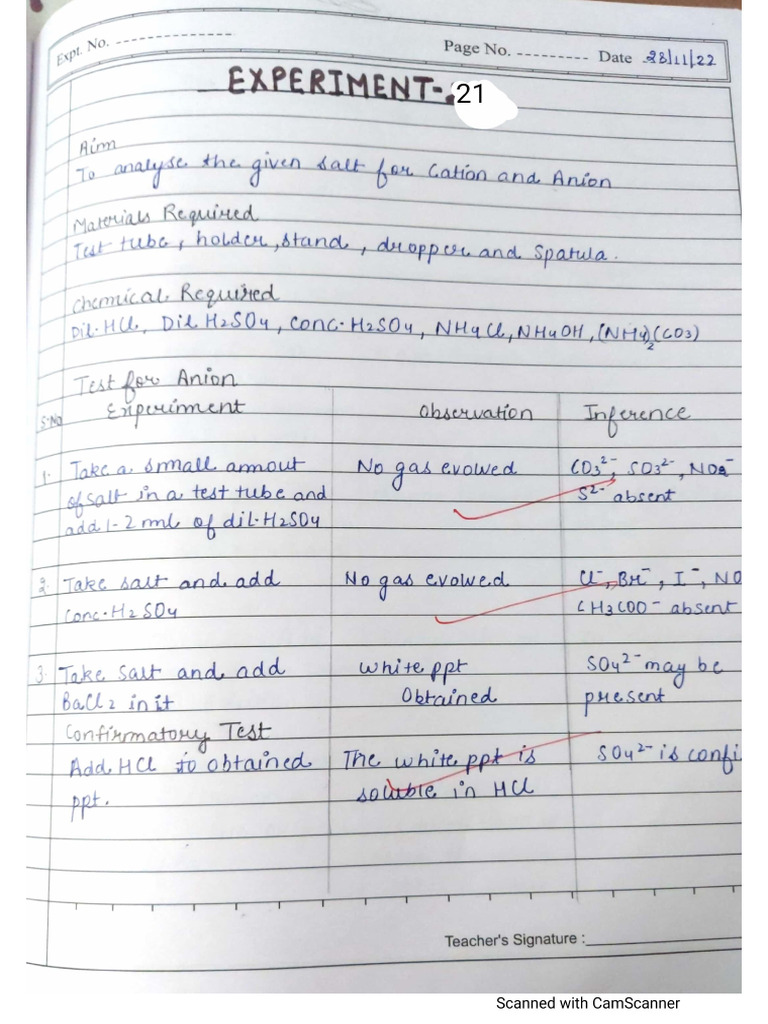 Expt. No. --------------
Page No. --------- Date 28/11/22
EXPERIMENT-21
Aim
To analyse the given salt for Cation and Anion
Materials Required
Test tube, holder, stand, dropper and Spatula.
Chemical Required
Dil. HCl, Dil H2SO4, conc. H2SO4, NH4Cl, NH4OH, (NH4)2(CO3)
Test for Anion
S.No Experiment Observation Inference
1. Take a small amout No gas evolved CO3²⁻, SO3²⁻, NO2⁻
of salt in a test tube and S²⁻ absent
add 1-2 ml of dil. H2SO4
2. Take salt and add No gas evolved Cl⁻, Br⁻, I⁻, NO
Conc. H2SO4 CH3COO⁻ absent
3. Take salt and add white ppt SO4²⁻ may be
BaCl2 in it Obtained present
Confirmatory Test
Add HCl to obtained The white ppt is SO4²⁻ is confi
ppt. soluble in HCl
Teacher's Signature :
Scanned with CamScanner